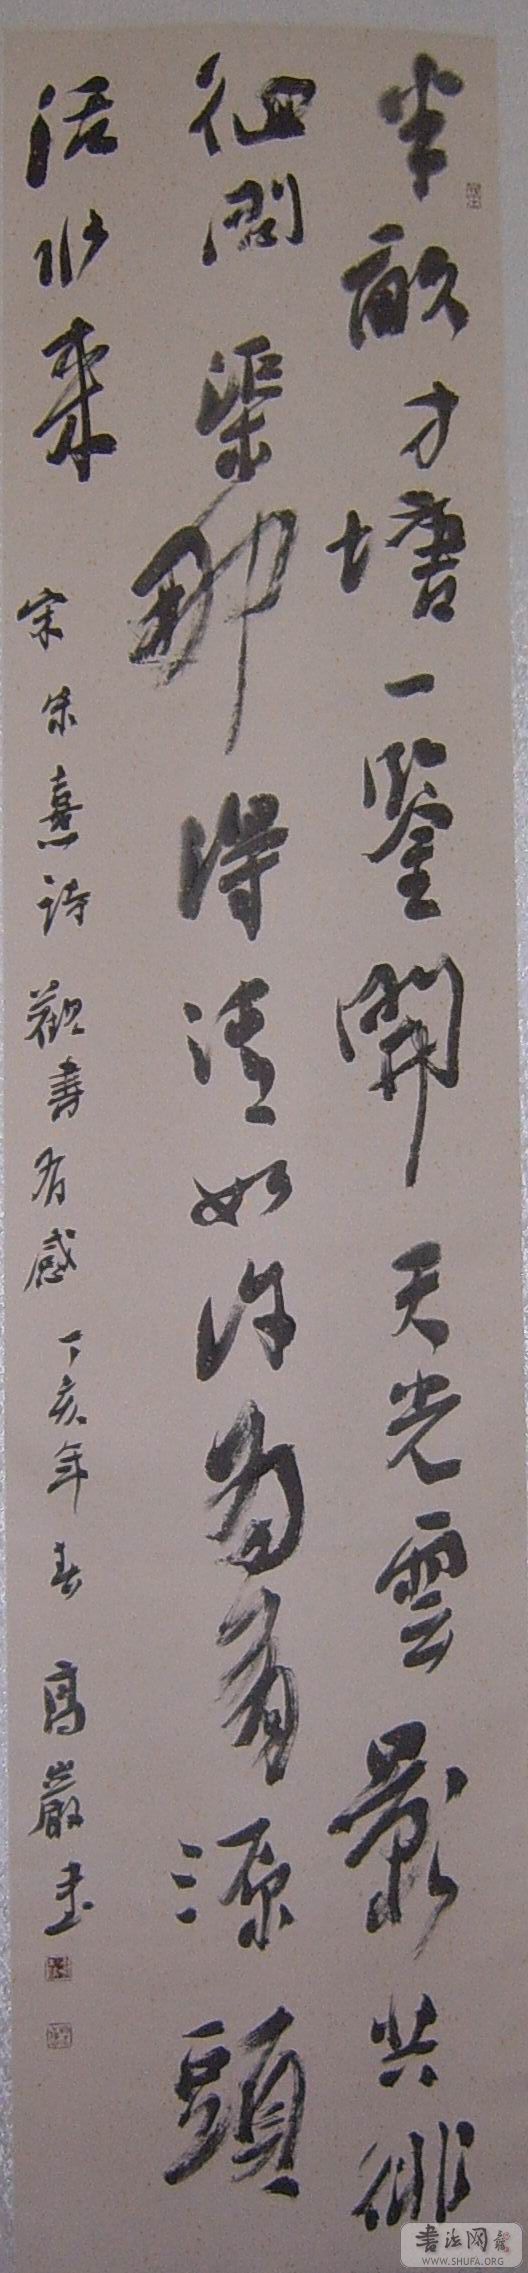 半畝方塘一鑒開天光雲影共徘
徊問渠那得清如許為有源頭
活水來
宋朱熹詩觀書有感丁亥年春高巖書
書法网
WWW.SHUFA.ORG